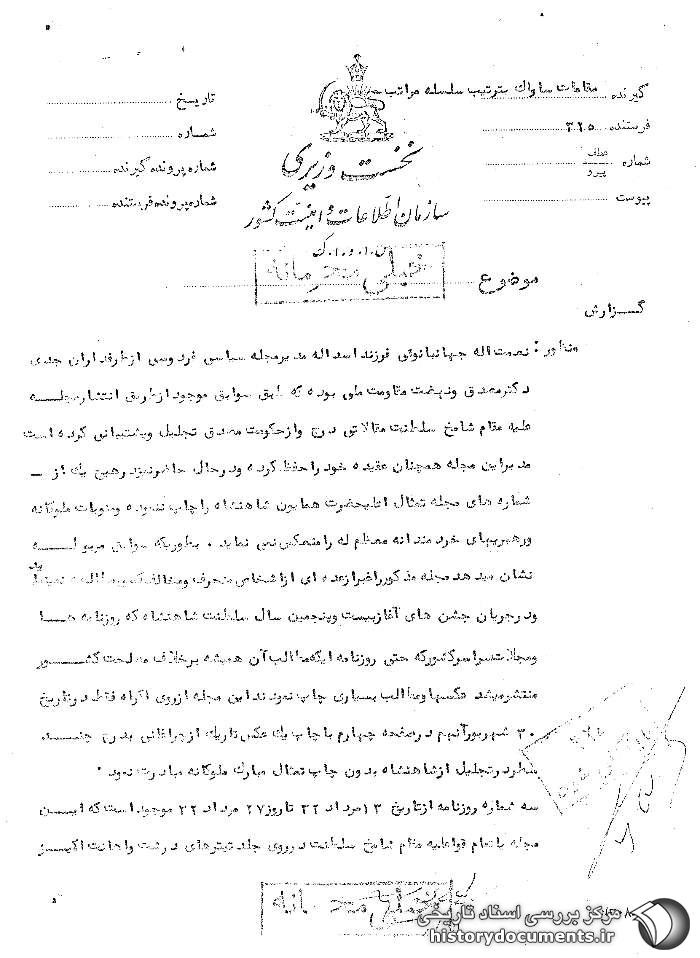 گیرنده مقامات ساواك بترتیب سلسله مراتب
فرستنده ۳۲۵
شماره عطف
پیرو
پیوست
تاریخ
شماره
شماره پرونده گیرنده
شماره پرونده فرستنده
نخست وزیری
سازمان اطلاعات و امنیت کشور
س.ا.و.ا.ک
خیلی محرمانه
موضوع
گزارش
منظور : نعمت اله جهانبانوئی فرزند اسداله مدیر مجله سیاسی فردوسی از طرفداران جدی
دکتر مصدق ونهضت مقاومت ملی بوده که طبق سوابق موجود از طریق انتشار مجله
علیه مقام شامخ سلطنت مقالاتی درج واز حکومت مصدق تجلیل وپشتیبانی کرده است
مدیر این مجله همچنان عقیده خود را حفظ کرده ودر حال حاضر نیز در هیچ یك از –
شماره های مجله تمثال اعلیحضرت همایون شاهنشاه را چاپ ننموده ومنویات ملوکانه
ورهبریهای خردمندانه معظم له را منعکس نمی نماید . بطوریکه سوابق مربوطه
نشان میدهد مجله مذکور را غیر از عده ای از اشخاص منحرف ومخالف کسی مطالعه نمینماید
ودر جریان جشن های آغاز بیست وپنجمین سال سلطنت شاهنشاه که روزنامه ها
ومجلات سراسر کشور که حتی روزنامه ایکه مطالب آن همیشه بر خلاف مصلحت کشور
منتشر میشد عکسها ومطالب بسیاری چاپ نمودند این مجله از روی اکراه فقط در تاریخ
۳۰ شهریور آنهم در صفحه چهارم با چاپ یك عکس تاریك از چراغانی بدرج چند
سطر در تجلیل از شاهنشاه بدون چاپ تمثال مبارك ملوکانه مبادرت نمود .
سه شماره روزنامه از تاریخ ۱۳ مرداد ۳۲ تا روز ۲۷ مرداد ۳۲ موجود است که این
مجله با تمام قوا علیه مقام شامخ سلطنت در روی جلد تیترهای درشت واهانت آمیز
خیلی محرمانه
مرکز بررسی اسناد تاریخی
historydocuments.ir